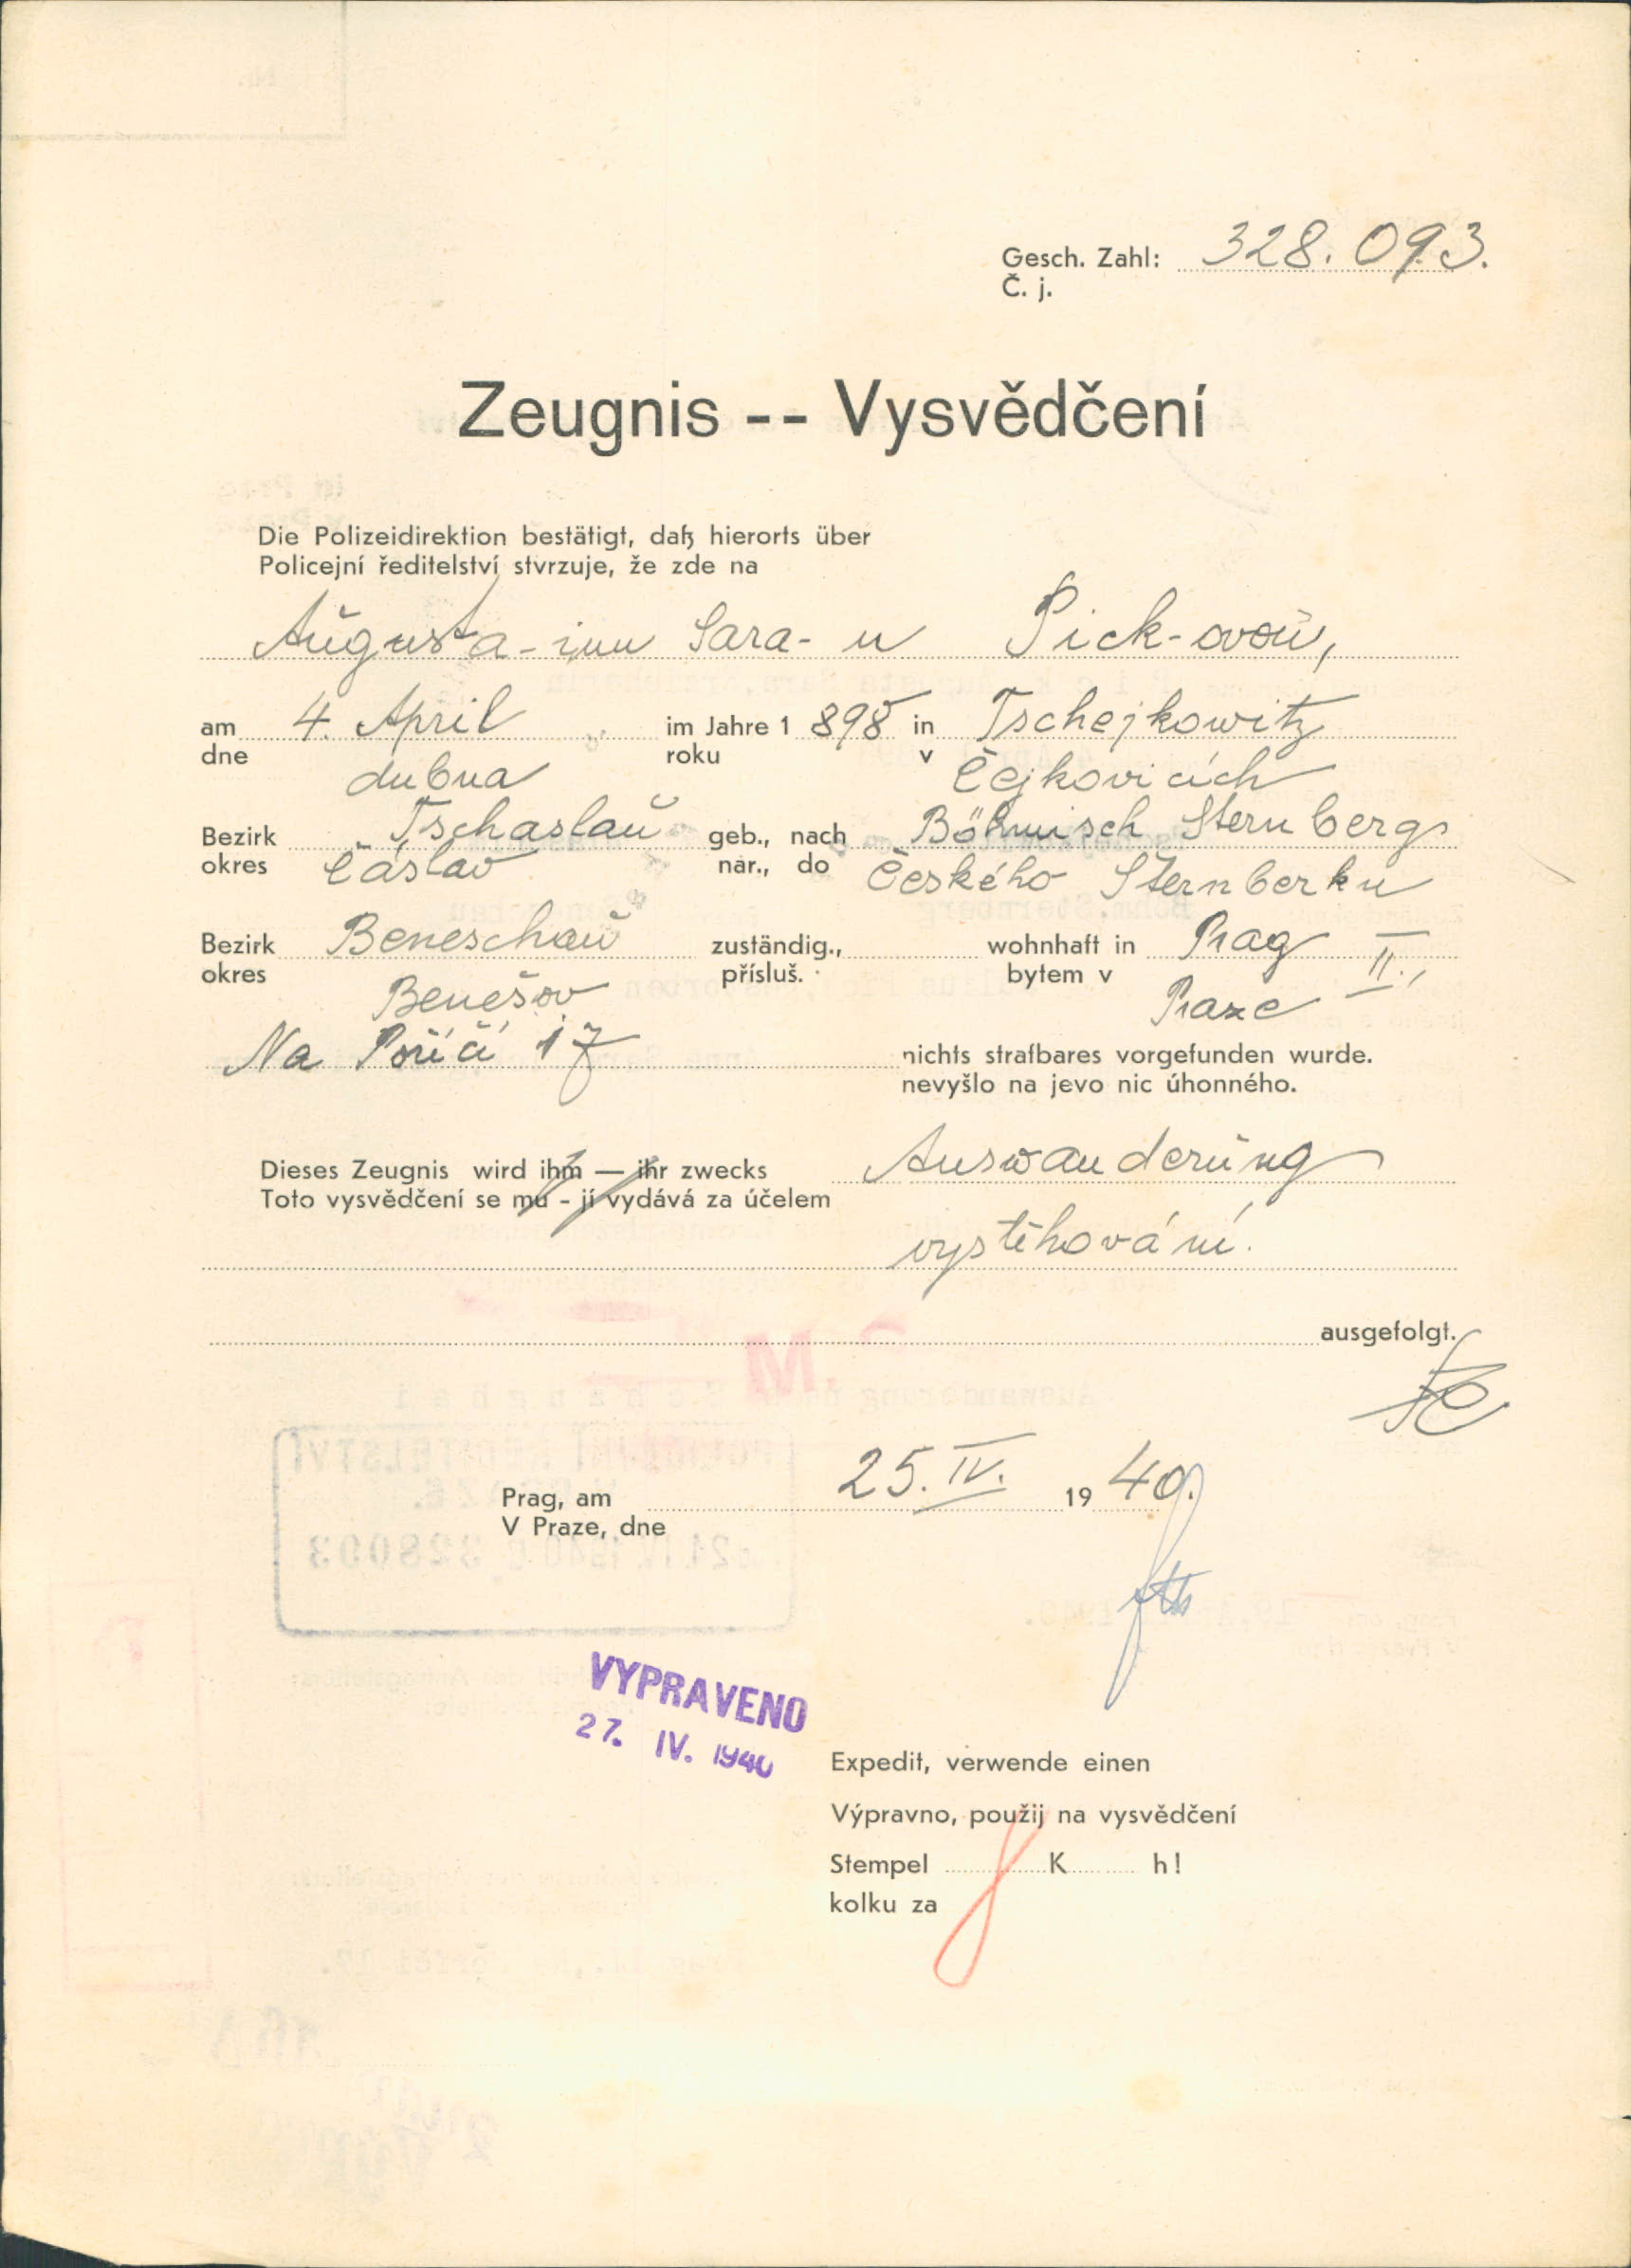 Gesch. Zahl: 328.093.
Č. j.
Zeugnis -- Vysvědčení
Die Polizeidirektion bestätigt, daß hierorts über
Policejní ředitelství stvrzuje, že zde na
Augusta-inu Sara-u Pick-ovou,
am 4. April im Jahre 1 898 in Tschejkowitz
dne dubna roku v Čejkovicích
Bezirk Tschaslau geb., nach Böhmisch Sternberg
okres Čáslav nar., do Českého Šternberku
Bezirk Beneschau zuständig., wohnhaft in Prag II.,
okres Benešov přísluš. bytem v Praze
Na Poříčí 17 nichts strafbares vorgefunden wurde.
nevyšlo na jevo nic úhonného.
Dieses Zeugnis wird ihm — ihr zwecks Auswanderung
Toto vysvědčení se mu - jí vydává za účelem
vystěhování.
ausgefolgt.
Prag, am 25. IV. 19 40.
V Praze, dne
VYPRAVENO
27. IV. 1940
Expedit, verwende einen
Výpravno, použij na vysvědčení
Stempel K h!
kolku za